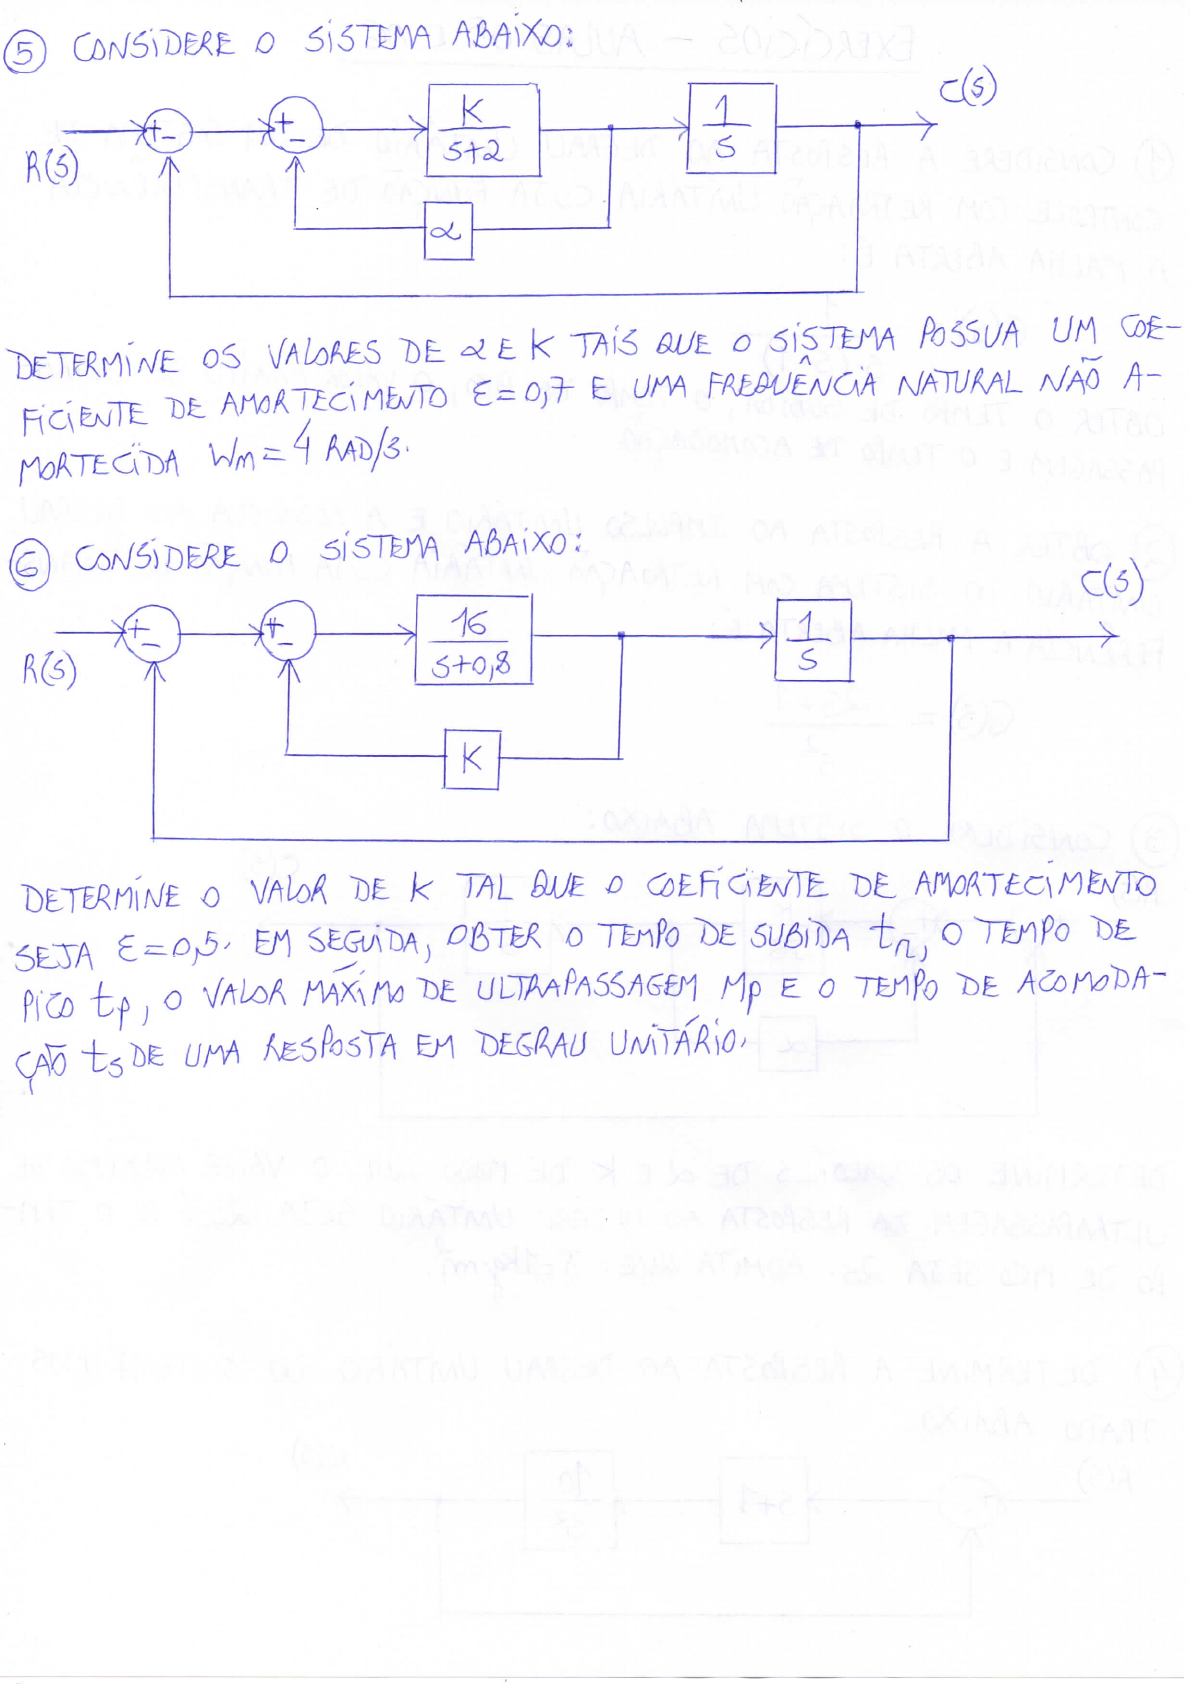 5 CONSIDERE O SISTEMA ABAIXO:
R(S) + - + - K/(S+2) 1/S C(S)
α
DETERMINE OS VALORES DE α E K TAIS QUE O SISTEMA POSSUA UM COE-
FICIENTE DE AMORTECIMENTO ε=0,7 E UMA FREQUÊNCIA NATURAL NÃO A-
MORTECIDA Wn=4 RAD/S.
6 CONSIDERE O SISTEMA ABAIXO:
R(S) + - + - 16/(S+0,8) 1/S C(S)
K
DETERMINE O VALOR DE K TAL QUE O COEFICIENTE DE AMORTECIMENTO
SEJA ε=0,5. EM SEGUIDA, OBTER O TEMPO DE SUBIDA tr, O TEMPO DE
PICO tp, O VALOR MÁXIMO DE ULTRAPASSAGEM Mp E O TEMPO DE ACOMODA-
ÇÃO ts DE UMA RESPOSTA EM DEGRAU UNITÁRIO.